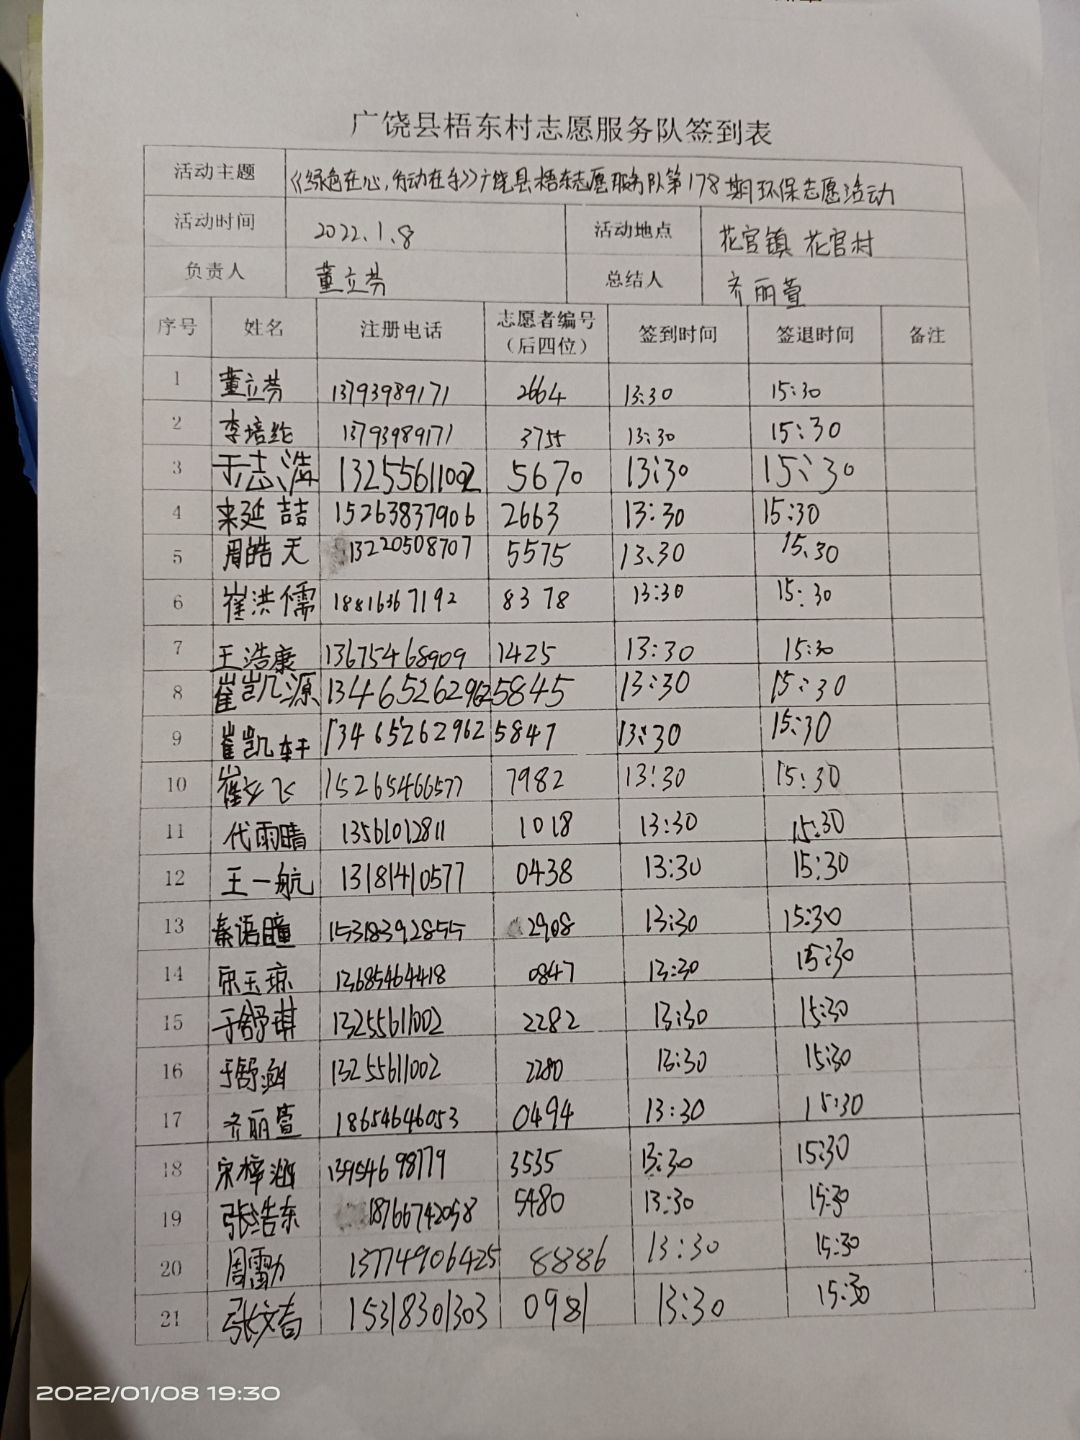 广饶县梧东村志愿服务队签到表
活动主题 《绿色在心，行动在手》广饶县梧东志愿服务队第178期环保志愿活动
活动时间 2022.1.8 活动地点 花官镇 花官村
负责人 董立芬 总结人 齐丽萱
序号 姓名 注册电话 志愿者编号（后四位） 签到时间 签退时间 备注
1 董立芬 13793989171 2664 13:30 15:30
2 李培纶 13793989171 3755 13:30 15:30
3 于志浩 13255611002 5670 13:30 15:30
4 来延喆 15263837906 2663 13:30 15:30
5 周皓天 13220508707 5575 13.30 15.30
6 崔洪儒 18816367192 8378 13:30 15:30
7 王浩康 13675468909 1425 13:30 15:30
8 崔凯源 13465262962 5845 13:30 15:30
9 崔凯轩 13465262962 5847 13:30 15:30
10 崔 飞 15265466577 7982 13:30 15:30
11 代雨晴 13561012811 1018 13:30 15:30
12 王一航 13181410577 0438 13:30 15:30
13 秦语瞳 15318392855 2908 13:30 15:30
14 宋玉琼 13685464418 0847 13:30 15:30
15 于舒琪 13255611002 2282 13:30 15:30
16 于舒涵 13255611002 2280 13:30 15:30
17 齐丽萱 18654646053 0494 13:30 15:30
18 宋梓涵 13954698179 3535 13:30 15:30
19 张浩东 18766742058 5480 13:30 15:30
20 周 13774906425 8886 13:30 15:30
21 张文 15318301303 0981 13:30 15:30
2022/01/08 19:30